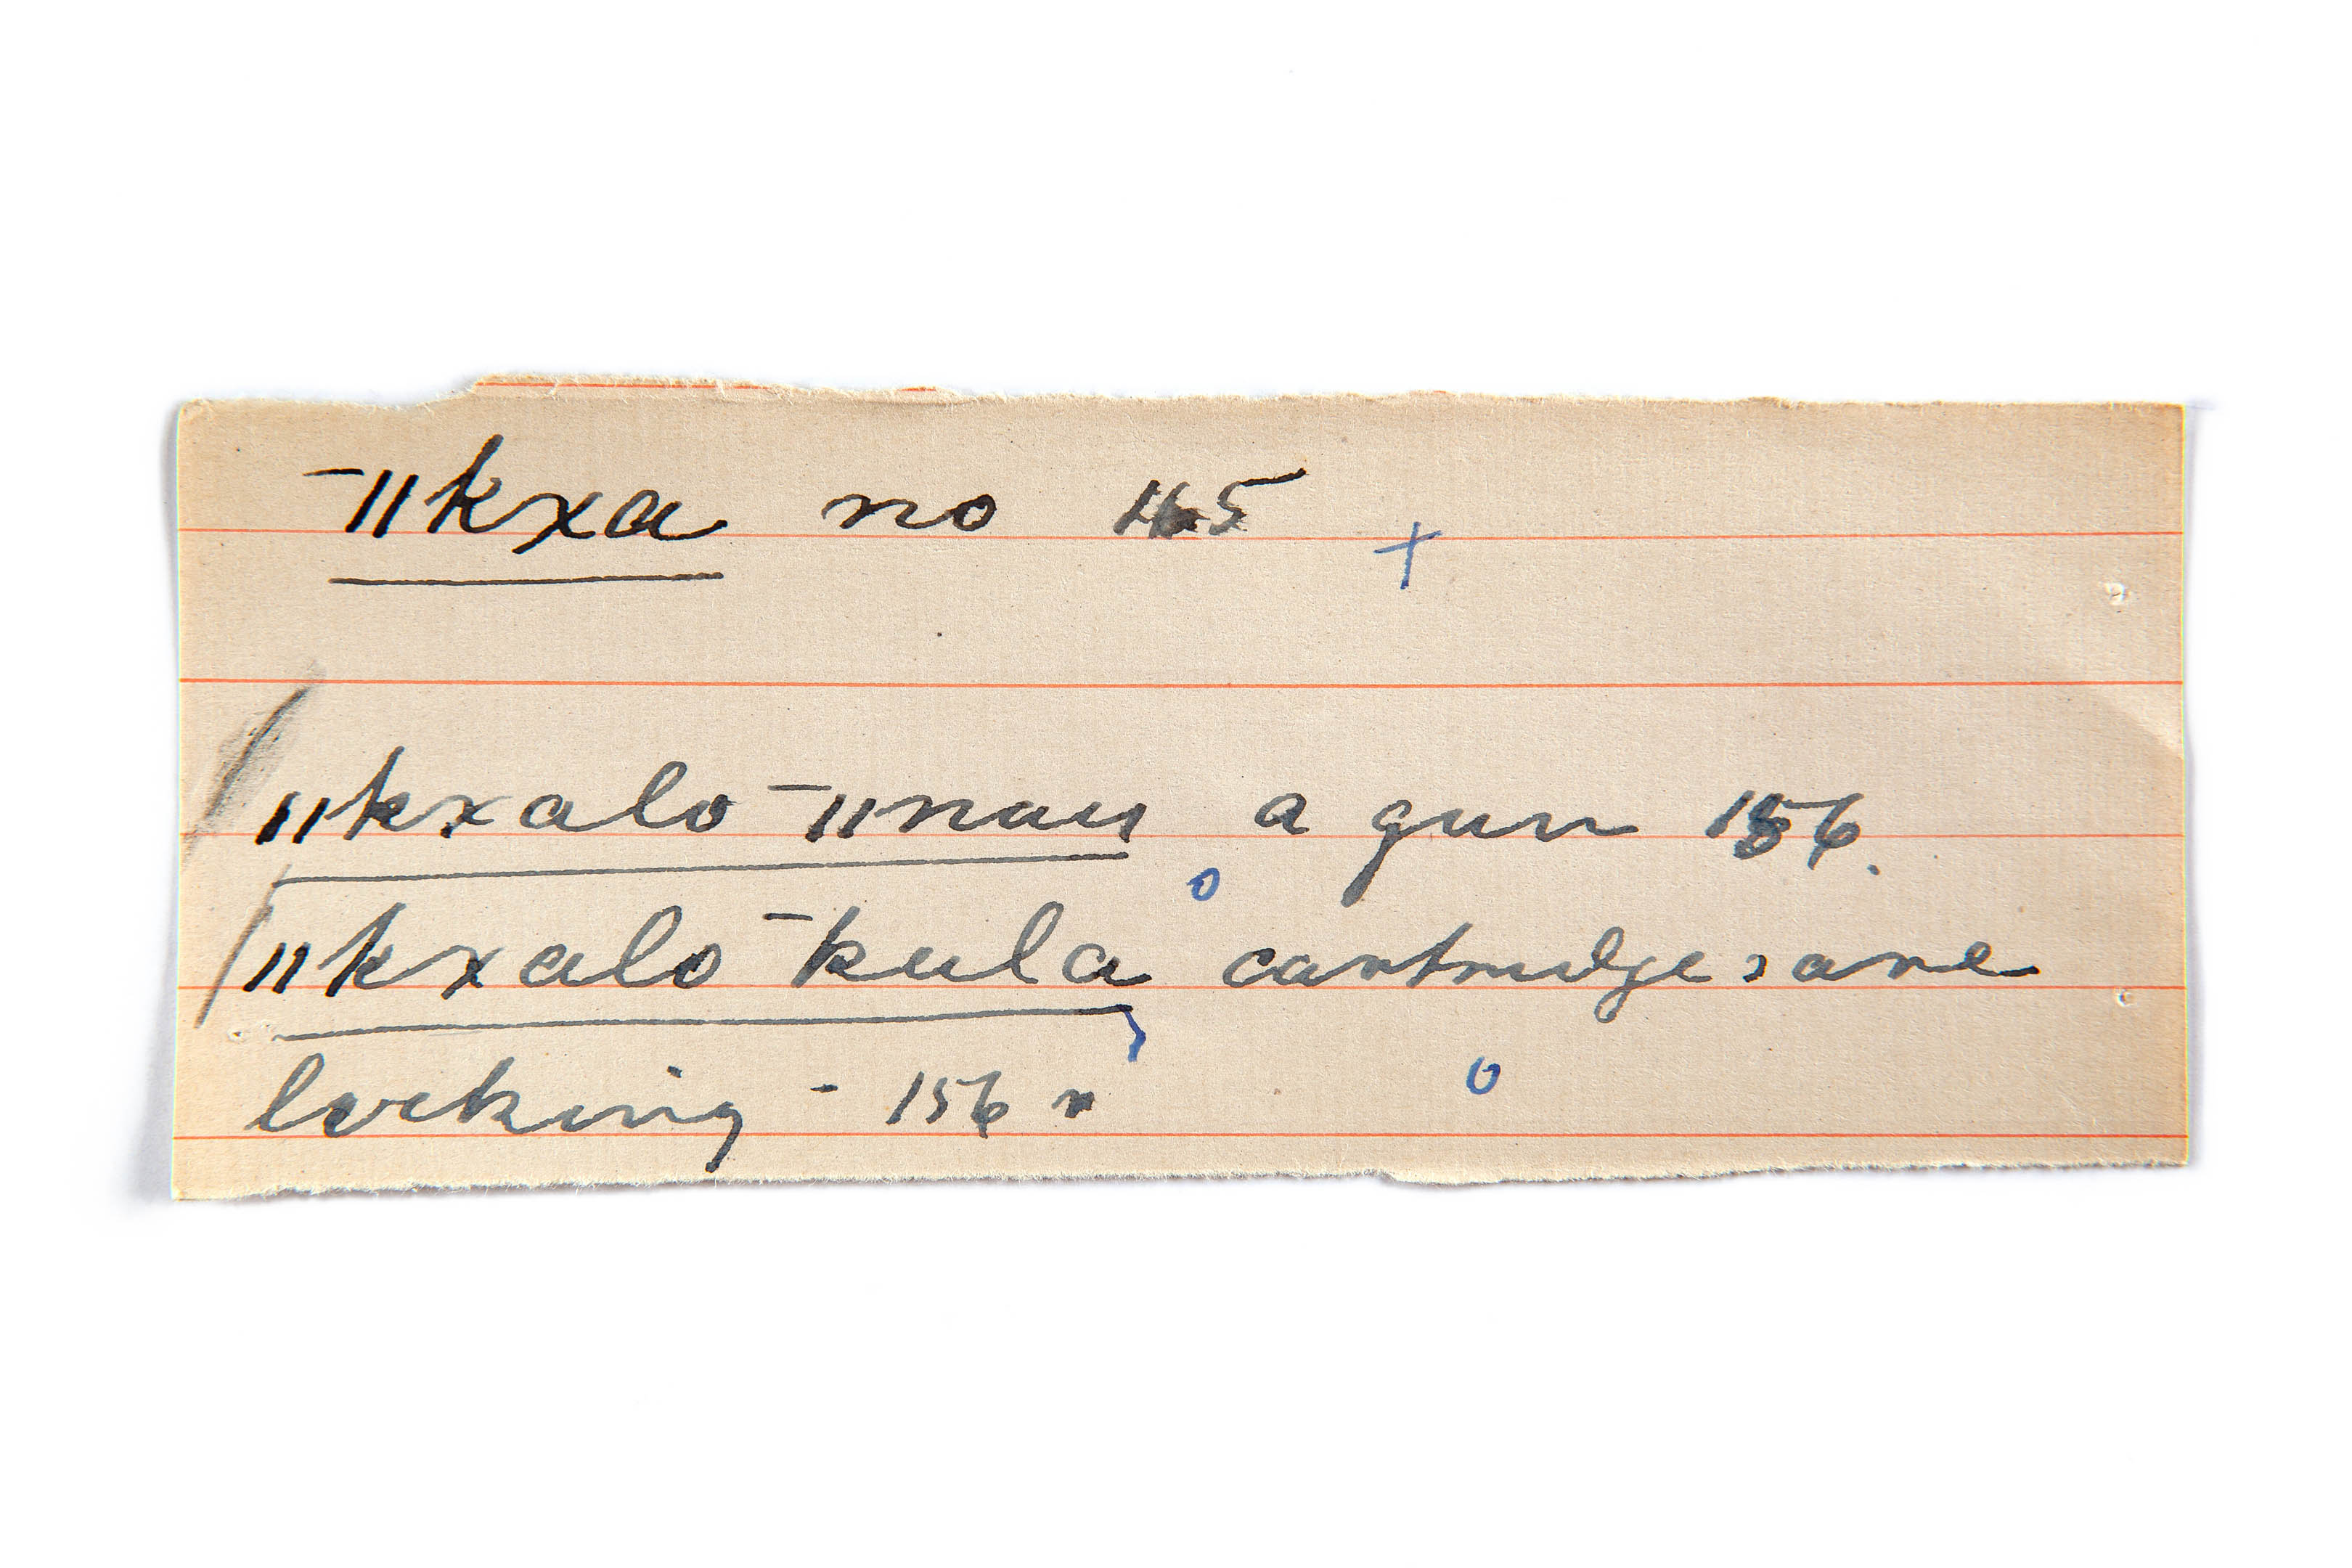 ‾ǁkxa no 165 +
ǁkxalo ‾ǁnau a gun 156.
o
ǁkxalo ‾kula cartridges are
looking - 156
o